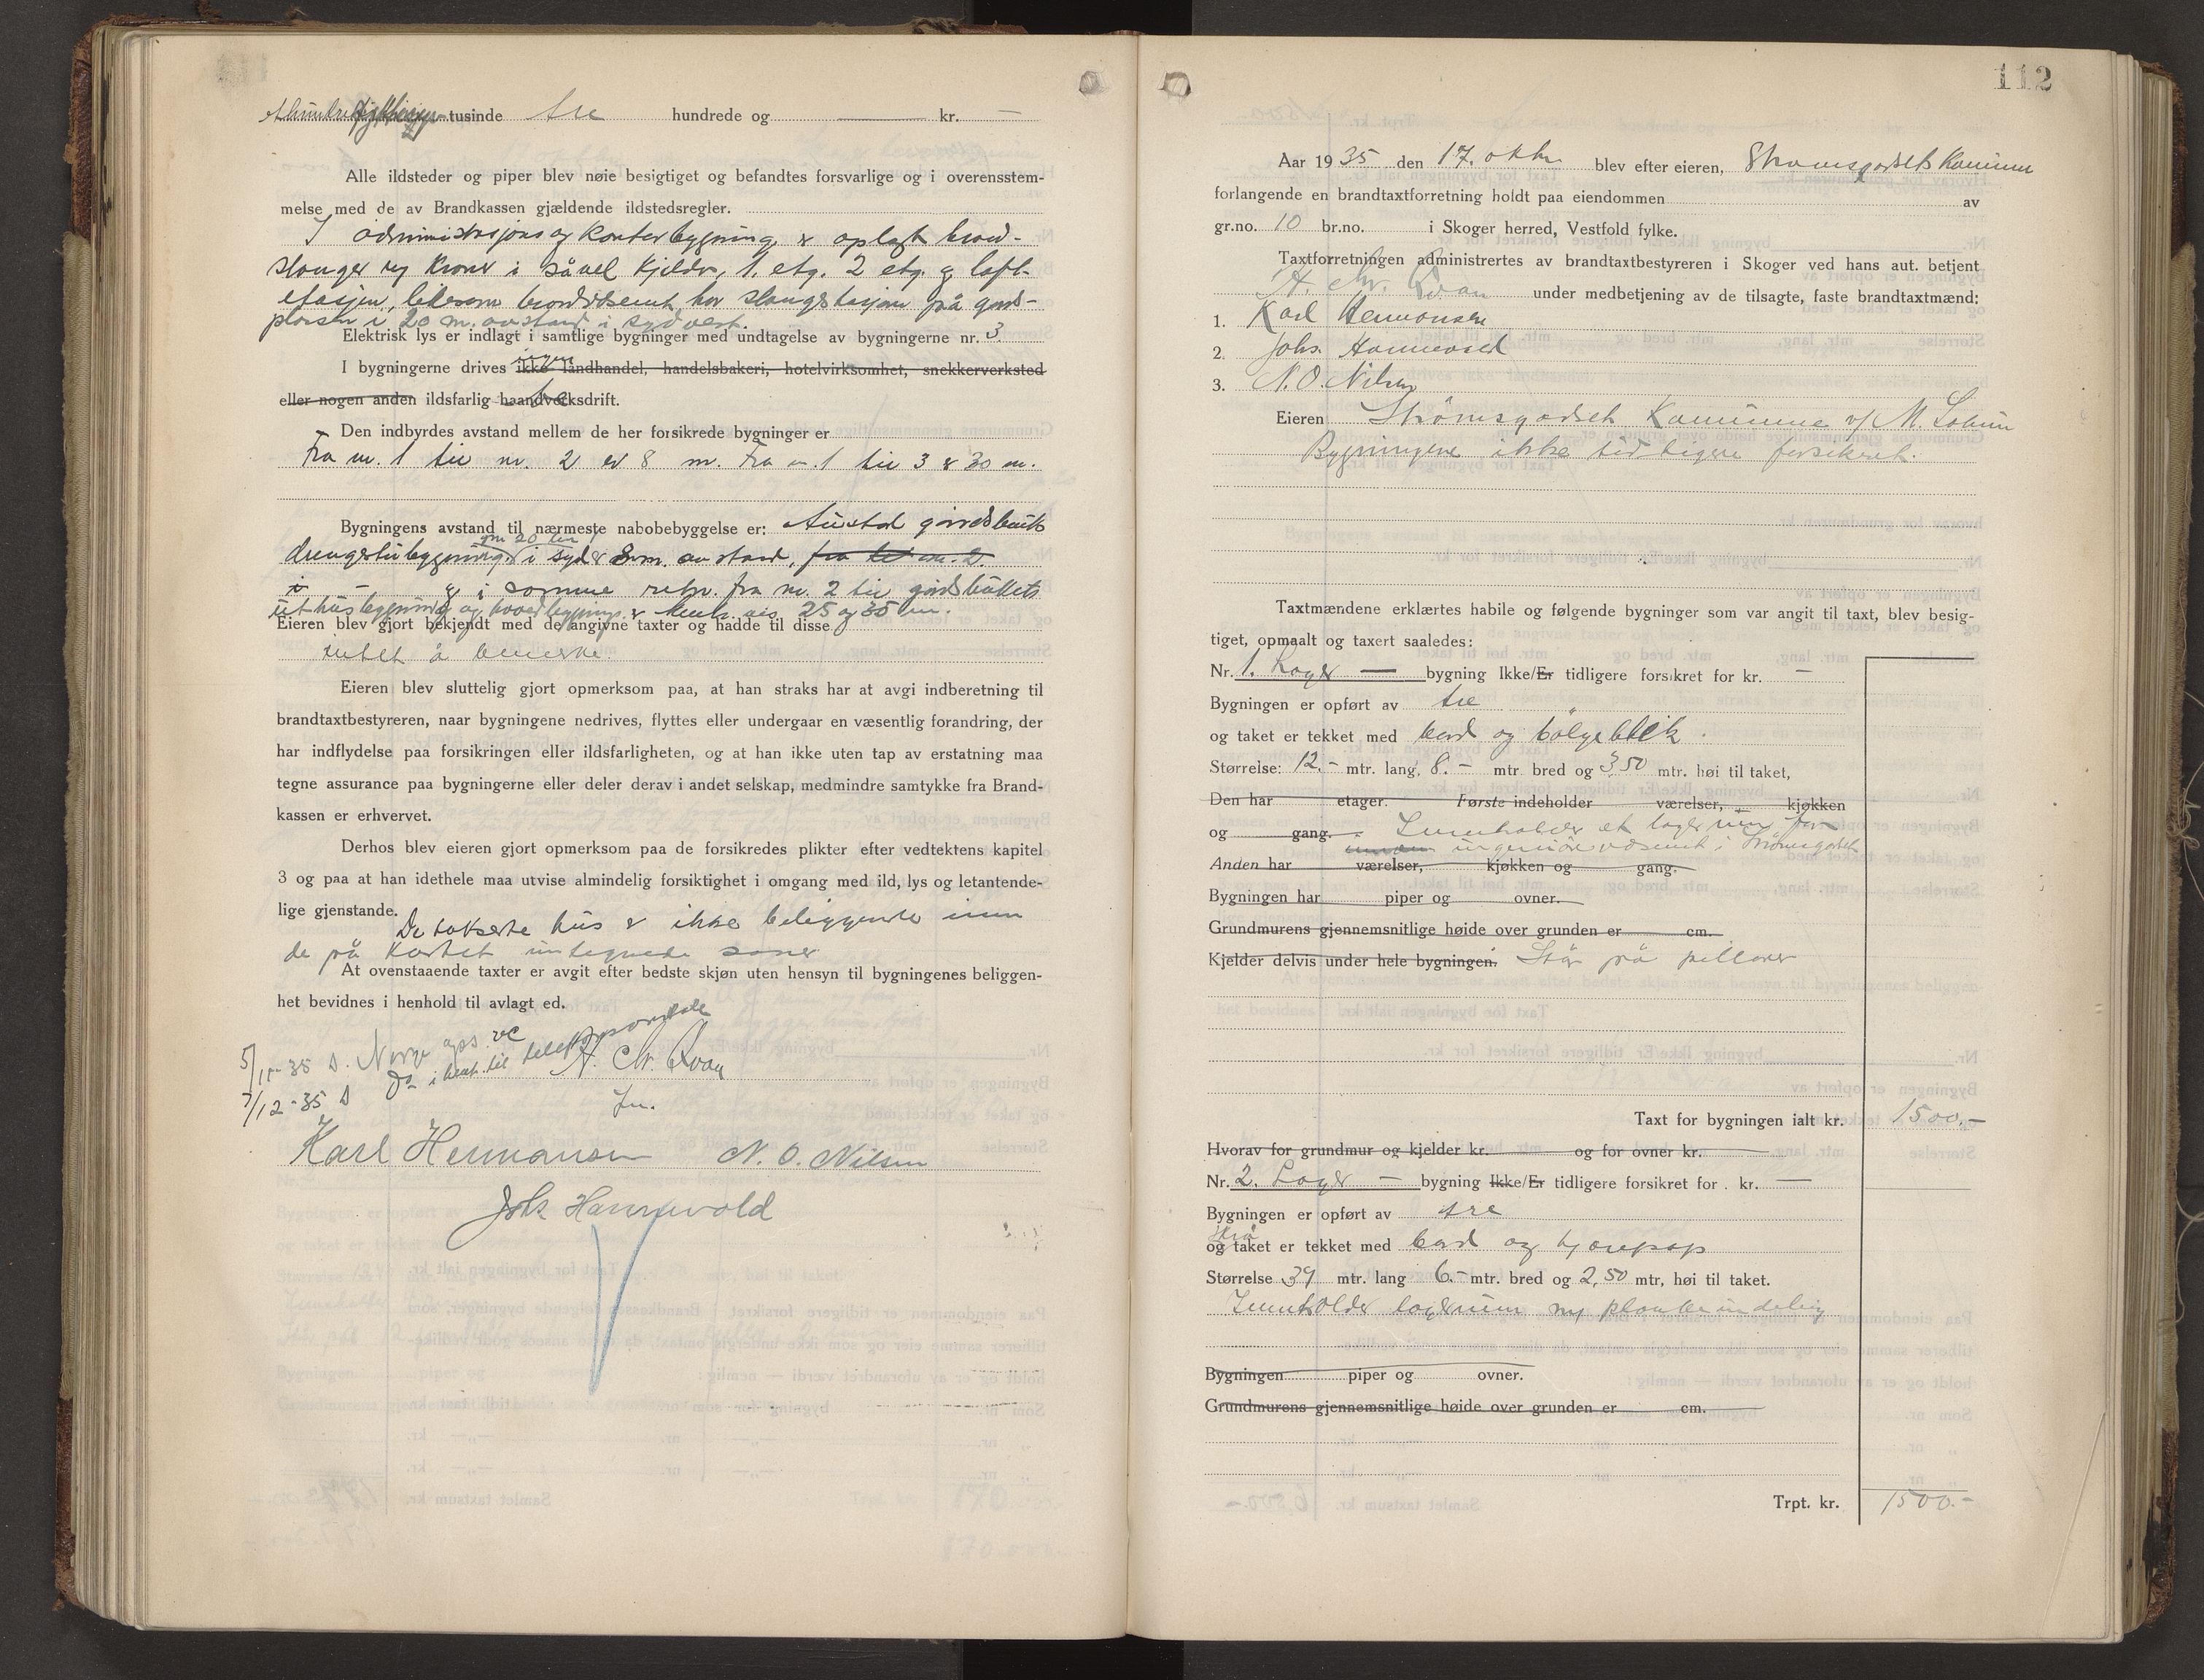 tusinde tre hundrede og — kr. —
Alle ildsteder og piper blev nøie besigtiget og befandtes forsvarlige og i overensstem-
melse med de av Brandkassen gjældende ildstedsregler.
I administrasjons og kontorbygning er oplagt brand-
slanger og kraner i såvel kjelder, 1. etg. 2 etg. og loft-
etasjen, likesom har slangestasjon på gårds-
plassen i 20 m. avstand i sydvest.
Elektrisk lys er indlagt i samtlige bygninger med undtagelse av bygningerne nr. 3.
I bygningerne drives ingen ikke landhandel, handelsbakeri, hotelvirksomhet, snekkerverksted
eller nogen anden ildsfarlig haandverksdrift.
Den indbyrdes avstand mellem de her forsikrede bygninger er
Fra nr. 1 til nr. 2 er 8 m. Fra nr. 1 til 3 er 30 m.
Bygningens avstand til nærmeste nabobebyggelse er: Austad gårdsbruks
i syd er 8 m. avstand, fra
og i samme retn. fra nr. 2 til gårdsbrukets
uthusbygning og hovedbygning er 25 og 35 m.
Eieren blev gjort bekjendt med de angivne taxter og hadde til disse
intet å bemerke.
Eieren blev sluttelig gjort opmerksom paa, at han straks har at avgi indberetning til
brandtaxtbestyreren, naar bygningene nedrives, flyttes eller undergaar en væsentlig forandring, der
har indflydelse paa forsikringen eller ildsfarligheten, og at han ikke uten tap av erstatning maa
tegne assurance paa bygningerne eller deler derav i andet selskap, medmindre samtykke fra Brand-
kassen er erhvervet.
Derhos blev eieren gjort opmerksom paa de forsikredes plikter efter vedtektens kapitel
3 og paa at han idethele maa utvise almindelig forsiktighet i omgang med ild, lys og letantende-
lige gjenstande.
De takserte hus er ikke beliggende inn
de på kartet inntegnede soner
At ovenstaaende taxter er avgit efter bedste skjøn uten hensyn til bygningenes beliggen-
het bevidnes i henhold til avlagt ed.
5/11-35 S. Norge
7/12-35 S
A. Chr. Roan
Karl Hermansen N. O. Nilsen
Johs Hannevold
112
Aar 1935 den 17. oktbr blev efter eieren, Strømsgodset Kommune
forlangende en brandtaxtforretning holdt paa eiendommen av
gr.no. 10 br.no. i Skoger herred, Vestfold fylke.
Taxtforretningen administrertes av brandtaxtbestyreren i Skoger ved hans aut. betjent
A. Chr. Roan under medbetjening av de tilsagte, faste brandtaxtmænd:
1. Karl Hermansen
2. Johs. Hannevold
3. N. O. Nilsen
Eieren Strømsgodset Kommune v/ M.
Bygningene ikke tidligere forsikret.
Taxtmændene erklærtes habile og følgende bygninger som var angit til taxt, blev besig-
tiget, opmaalt og taxert saaledes:
Nr. 1. Lager — bygning Ikke/Er tidligere forsikret for kr. —
Bygningen er opført av tre
og taket er tekket med bord og bølgeblikk.
Størrelse: 12.- mtr. lang, 8.- mtr. bred og 3,50 mtr. høi til taket,
Den har etager. Første indeholder værelser, kjøkken
og gang. Inneholder et lagerrum for
ingeniørvesenet i Strømsgodset
Anden har værelser, kjøkken og gang.
Bygningen har piper og ovner.
Grundmurens gjennemsnitlige høide over grunden er cm.
Kjelder delvis under hele bygningen. Står på pillarer
Taxt for bygningen ialt kr. 1500.-
Hvorav for grundmur og kjelder kr. og for ovner kr.
Nr. 2. Lager — bygning Ikke/Er tidligere forsikret for . kr. —
Bygningen er opført av tre
skrå
og taket er tekket med bord og tjærepap
Størrelse 39 mtr. lang 6.- mtr. bred og 2,50 mtr, høi til taket.
Inneholder lagerrum
Bygningen piper og ovner.
Grundmurens gjennemsnitlige høide over grunden er cm.
Trpt. kr. 1500.-